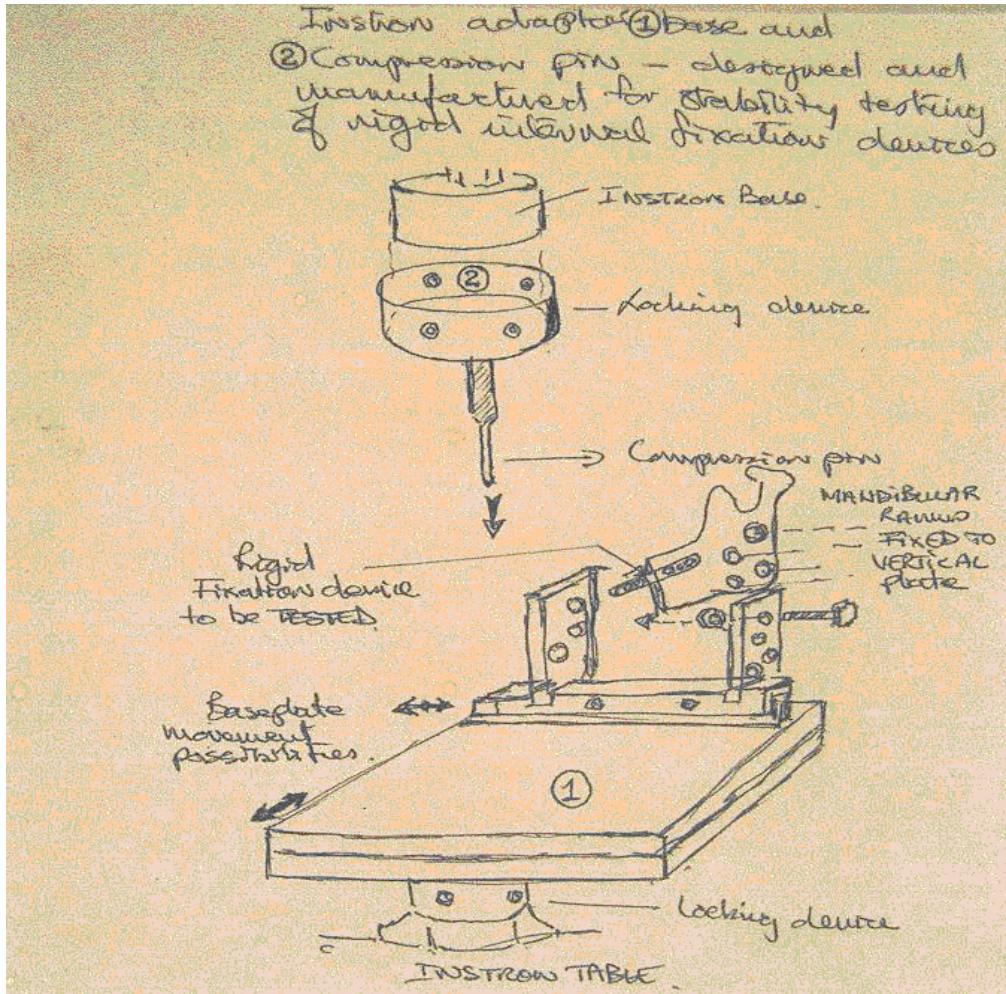 Instron adaptor ① base and
② Compression pin – designed and
manufactured for stability testing
of rigid internal fixation devices
INSTRON Base.
②
Locking device
Compression pin
MANDIBULAR
RAMUS
FIXED TO
VERTICAL
plate
Rigid
Fixation device
to be TESTED.
Baseplate
movement
possibilities.
①
Locking device
INSTRON TABLE.